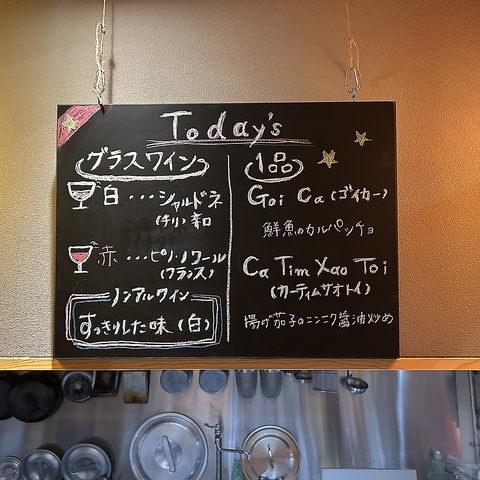 Today's
グラスワイン
白・・・シャルドネ
(チリ)辛口
赤・・・ピノ・ノワール
(フランス)
ノンアルワイン
すっきりした味(白)
1品
Goi Ca(ゴイカー)
鮮魚のカルパッチョ
Ca Tim Xao Toi
(カーティムサオトイ)
揚げ茄子のニンニク醤油炒め